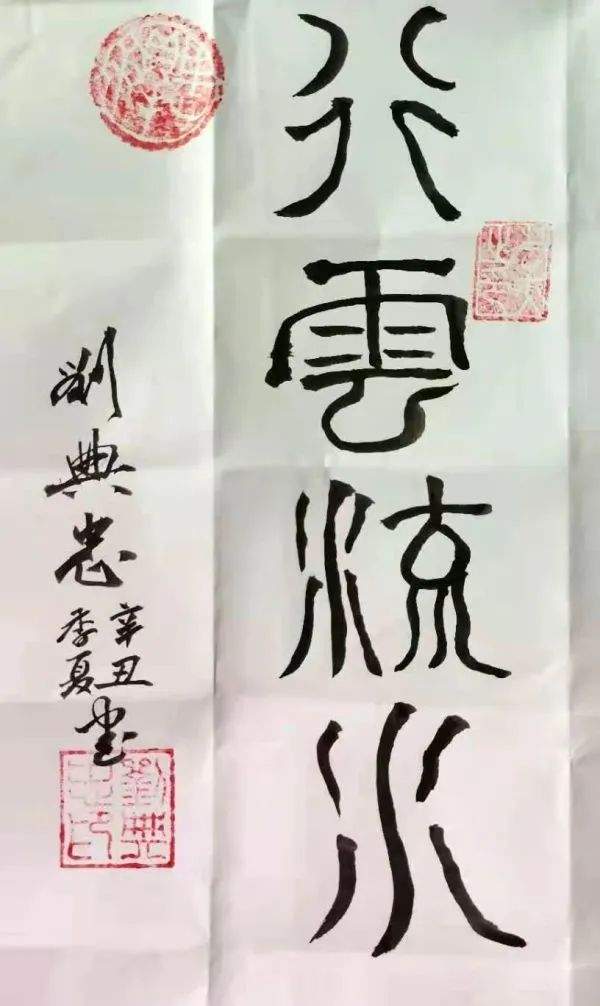 行雲流水
劉典忠
辛丑
季夏
書
劉典
忠印